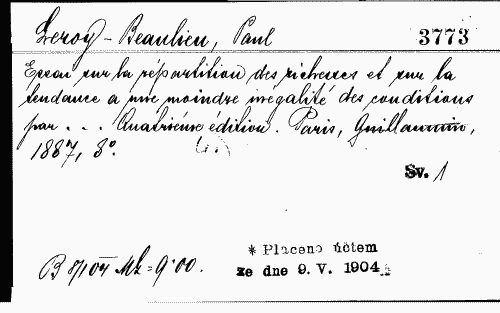 Leroy-Beaulieu, Paul 3773
Essai sur la répartition des richesses et sur la
tendance a une moindre inégalité des conditions
par . . . Quatrième édition. Paris, Guillaumin,
1887, 8°.
Sv. 1
* Placeno účtem
B 8/104 Mk = 9·00. ze dne 9. V. 1904